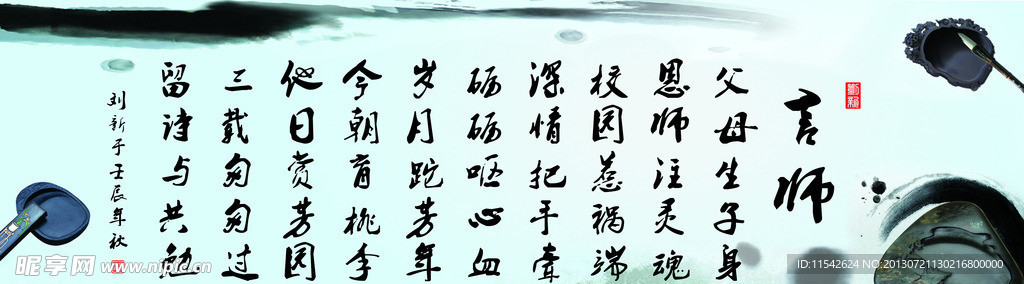 言师
父母生子身
恩师注灵魂
校园惹祸端
深情把手牵
砺砺呕心血
岁月跎芳年
今朝育桃李
他日赏芳园
三载匆匆过
留诗与共勉
刘新于壬辰年秋
昵享网 www.nipic.cn
ID:11542624 NO:20130721130216800000